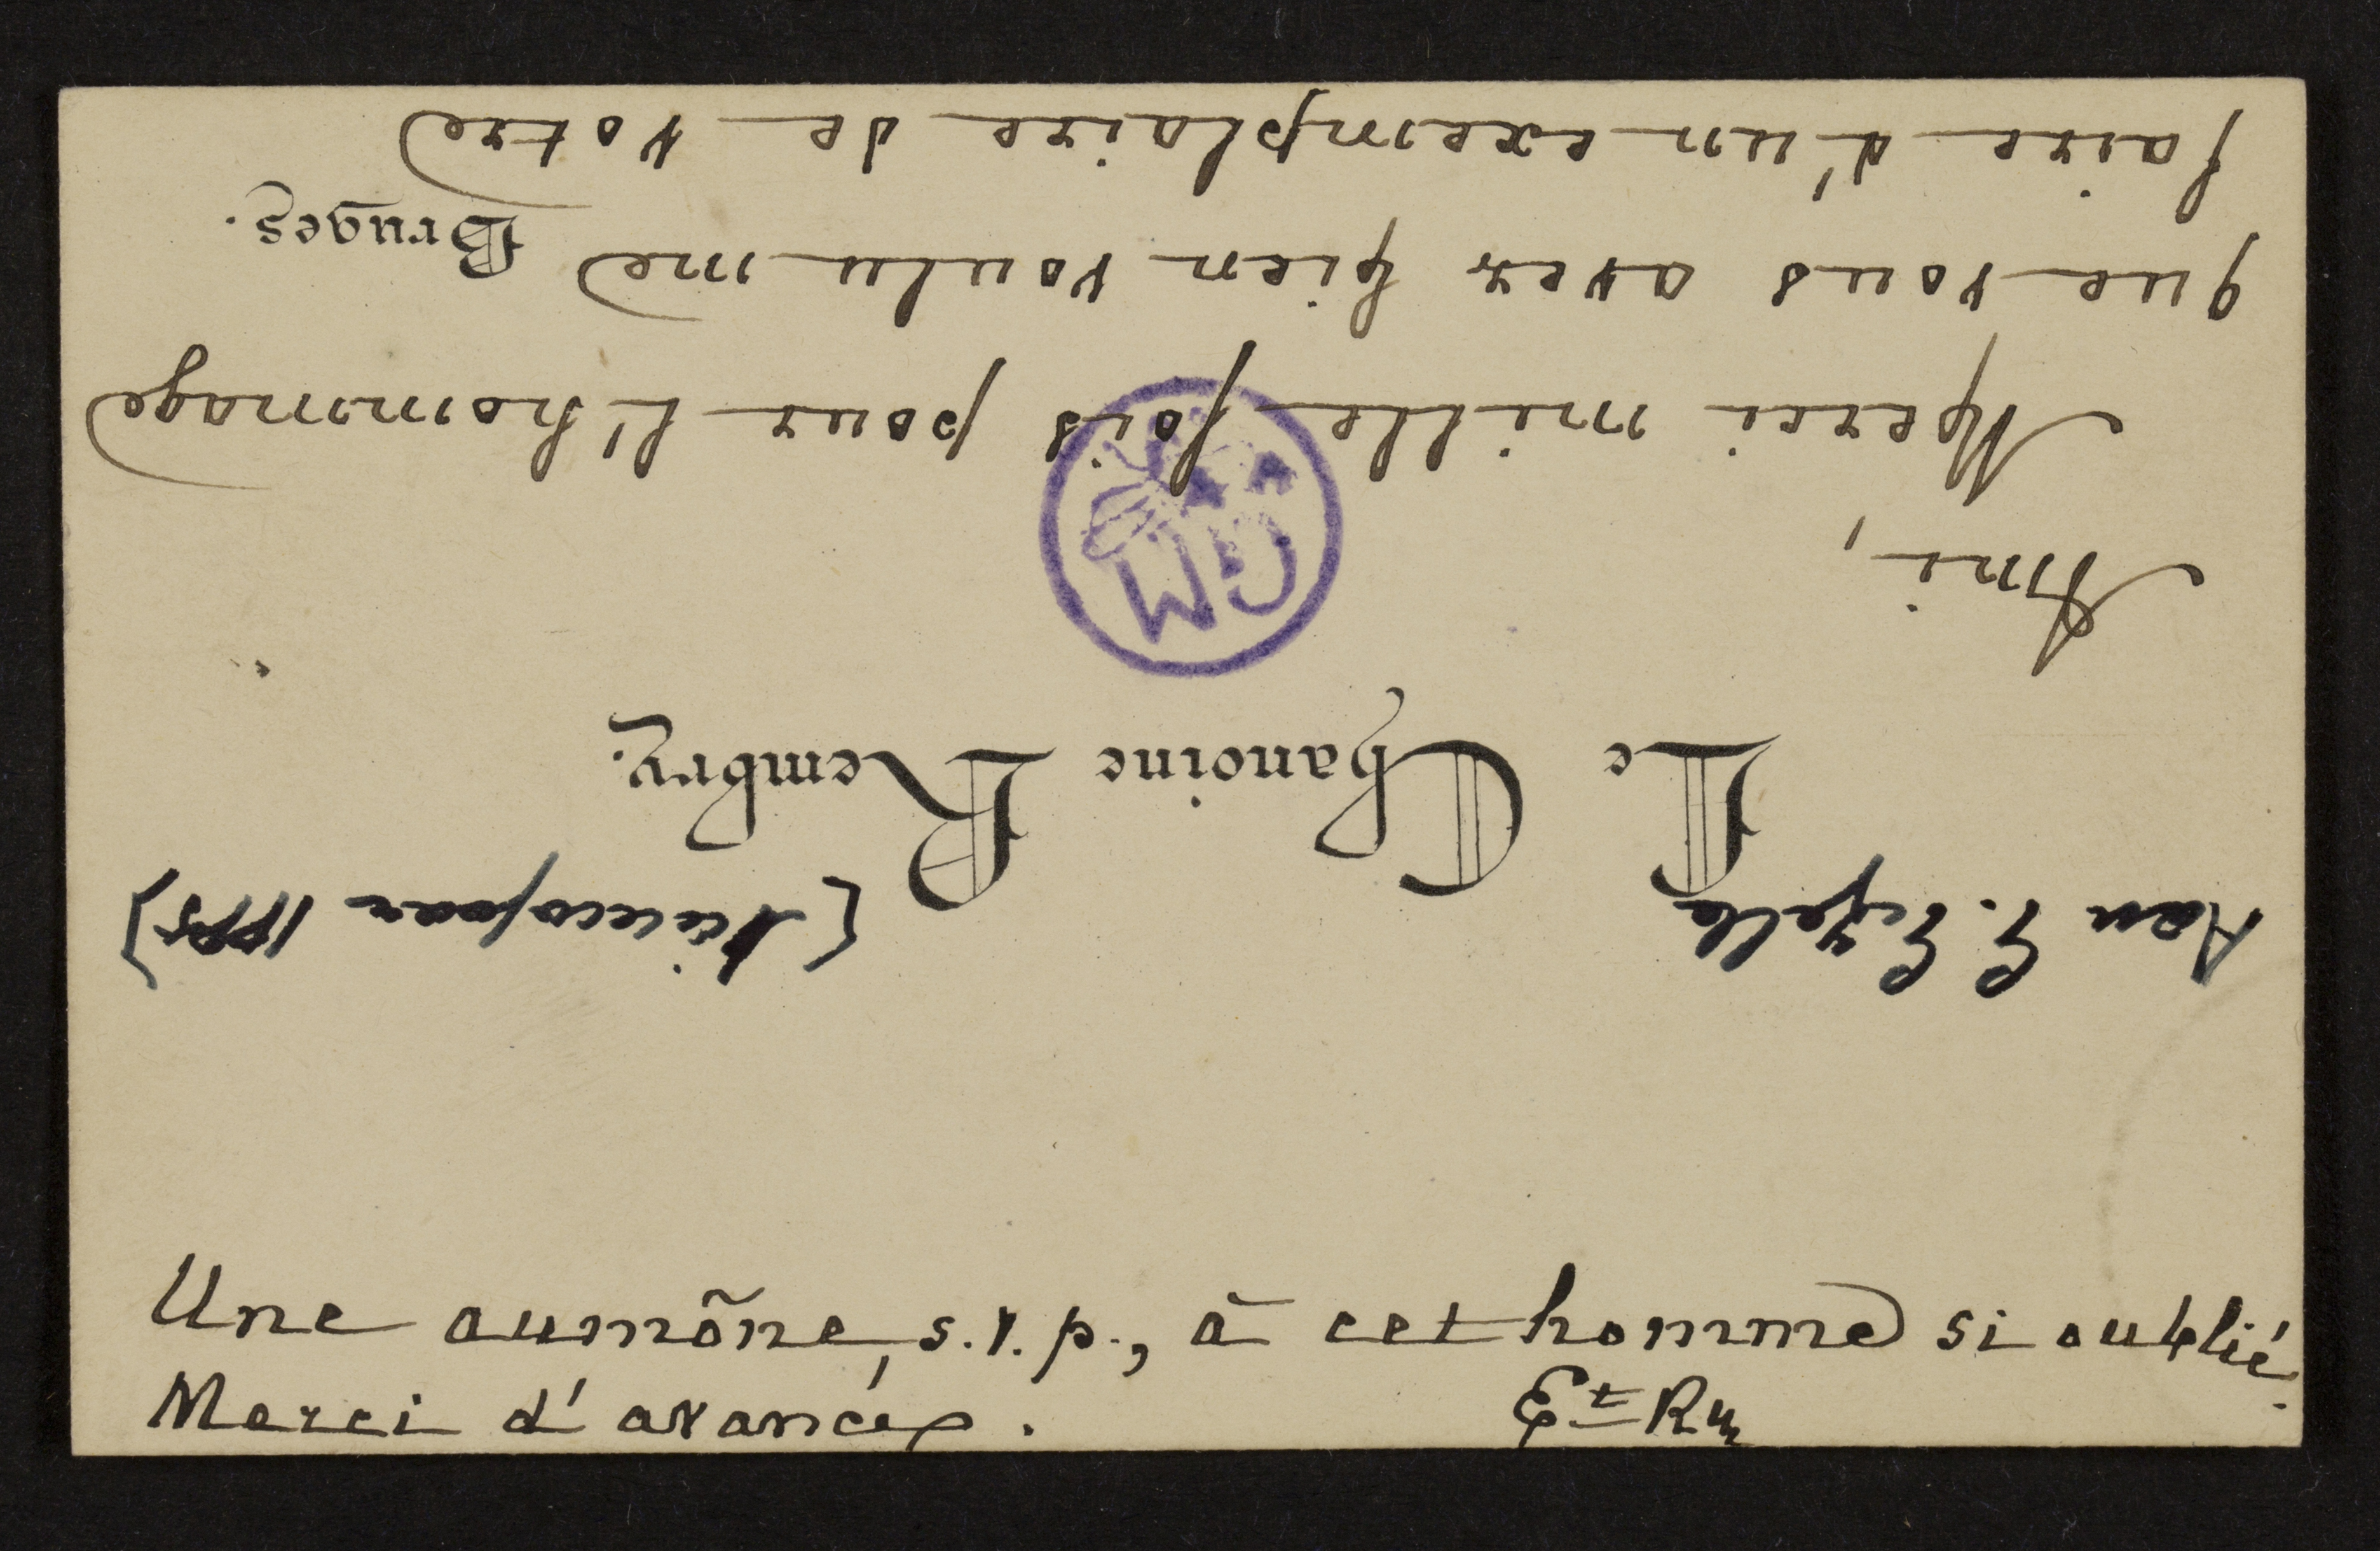 Aan G. Gezelle [Nieuwjaar
Le Chanoine Rembry.
Ami,
Merci mille fois pour l'hommage
que vous avez bien voulu me
Bruges.
faire d'un exemplaire de votre
Une aumône, s.v.p., à cet homme si oublié.
Merci d'avance.